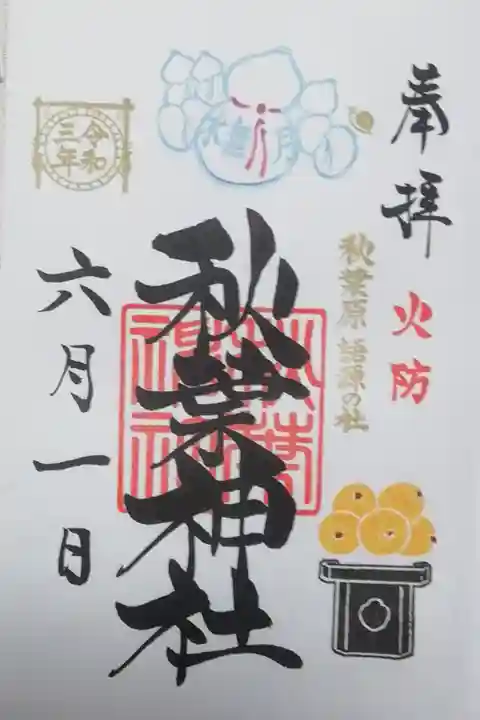 奉拝
火防
秋葉原 語源の社
水無月
秋葉神社
秋葉神社
令和
三年
六月一日